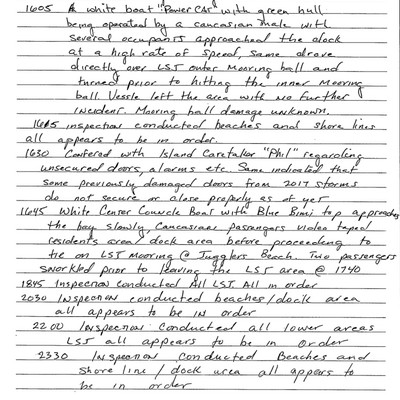 1605 A white boat "Power Cat" with green hull
being operated by a caucasian male with
several occupants approached the dock
at a high rate of speed, same drove
directly over LSJ outer Mooring ball and
turned prior to hitting the inner Mooring
ball. Vessle left the area with no further
incident. Mooring ball damage unknown.
1615 inspection conducted beaches and shore lines
all appears to be in order.
1630 Confered with Island Caretaker "Phil" regarding
unsecured doors, alarms etc. Same indicated that
some previously damaged doors from 2017 storms
do not secure or close properly as of yet
1645 White Center Councle Boat with Blue Bimi top approaches
the bay slowly, Cancasians passangers video taped
residents area/dock area before proceeding to
tie on LSJ Mooring @ Jugglers Beach. Two passengers
snorkled prior to leaving the LSJ area @ 1740
1845 Inspection Conducted All LSJ. All in order
2030 Inspection conducted beaches/dock area
all appears to be in order
2200 Inspection Conducted all lower areas
LSJ all appears to be in order
2330 Inspection Conducted Beaches and
shore line / dock area all appears to
be in order